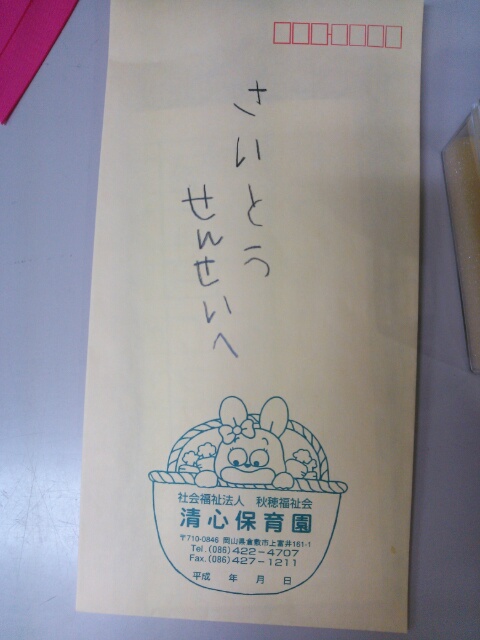 さいとう
せんせいへ
社会福祉法人 秋穂福祉会
清心保育園
〒710-0846 岡山県倉敷市上富井161-1
Tel.(086)422-4707
Fax.(086)427-1211
平成 年 月 日